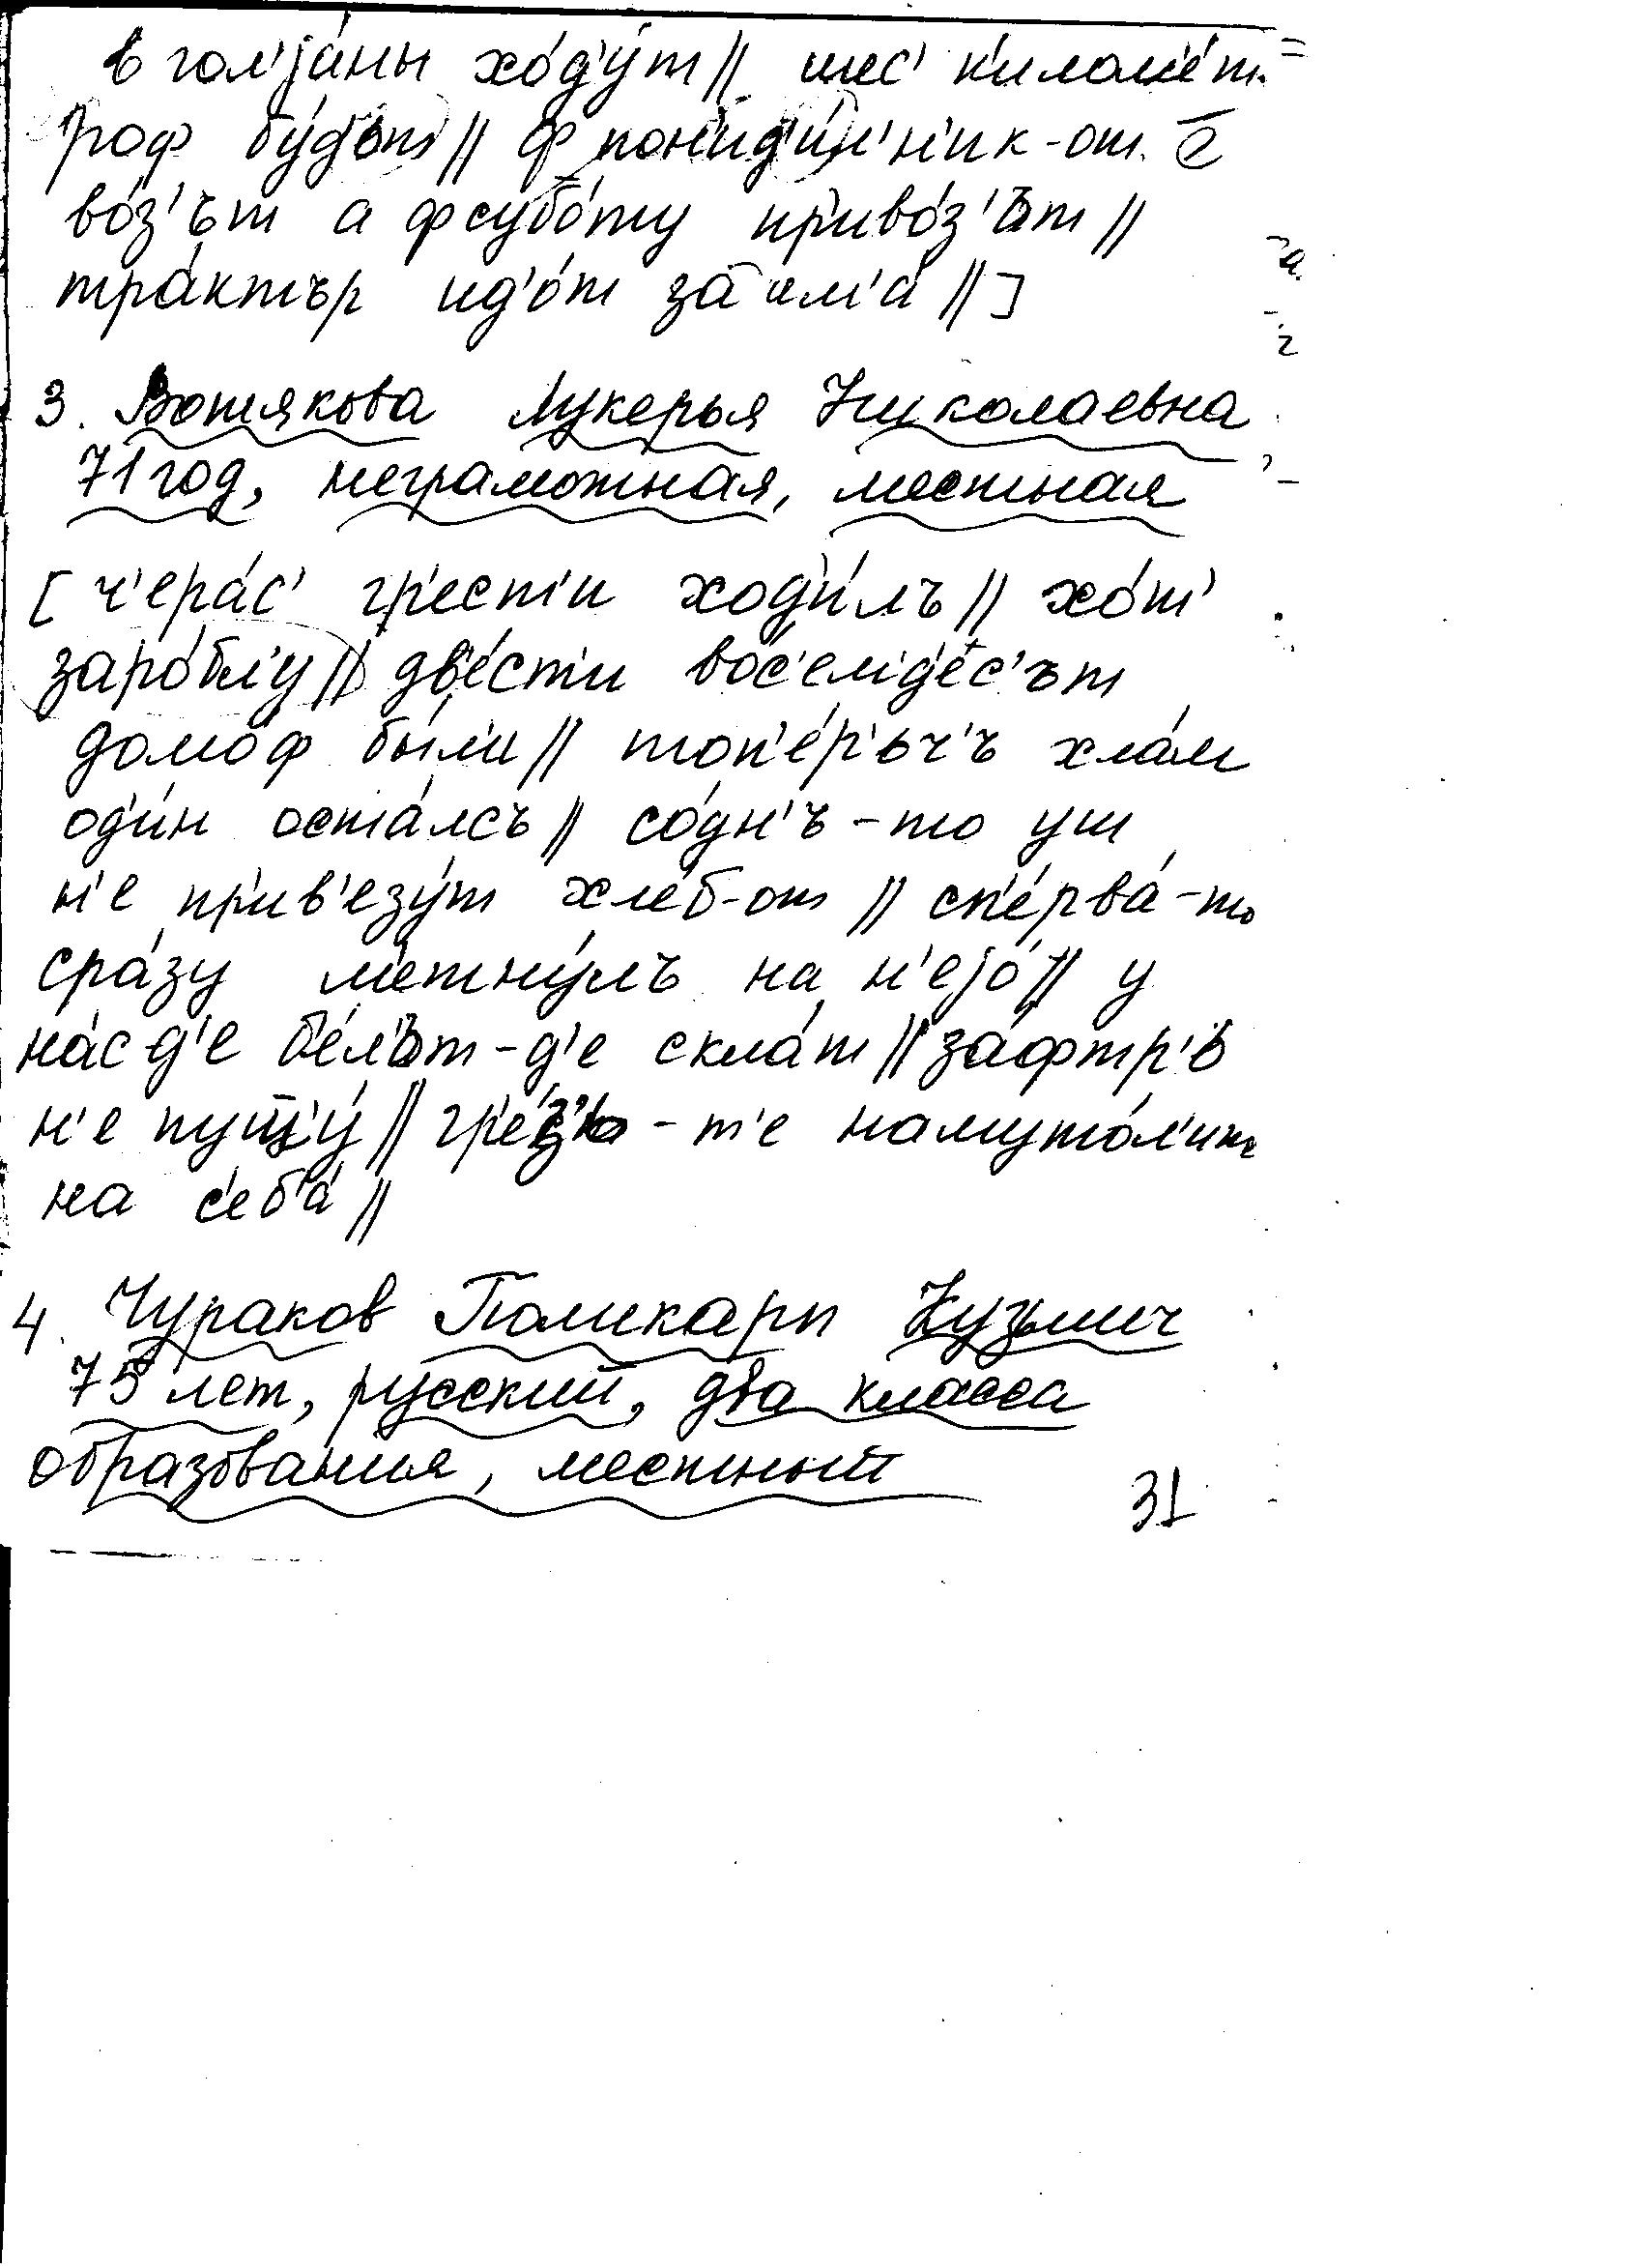 в гол'jа́ны хо́д'у́т // шес' к'илом'е́т-
роф бу́дьт // ф пон'ид'и́л'н'ик-от
во́з'ът а фсубо́ту пр'иво́з'ът //
тра́ктър ид'о́т за им'а́ // ]
3. Вотякова Лукерья Николаевна
71 год, неграмотная, местная
[ ч'ера́с' гр'ест'и ход'и́лъ // хо́т'
заро́бл'у // дв'е́ст'и вос'ем'д'е́с'ът
домо́ф бы́л'и // топ'е́р'ьч'ъ хла́м
од'и́н оста́лсъ // со́дн'ъ-то уш
н'е пр'ив'езу́т хле́б-от // сп'е́рва́-то
сра́зу м'етну́лъ на н'ејо́ // у
на́с д'е б'е́лът-д'е скла́т // за́фтр'ь
н'е пущ'у́ // гр'е́з'ь-т'е намуто́л'ит
на с'еб'а́ //
4. Чураков Поликарп Кузьмич
75 лет, русский, два класса
образования, местный
31